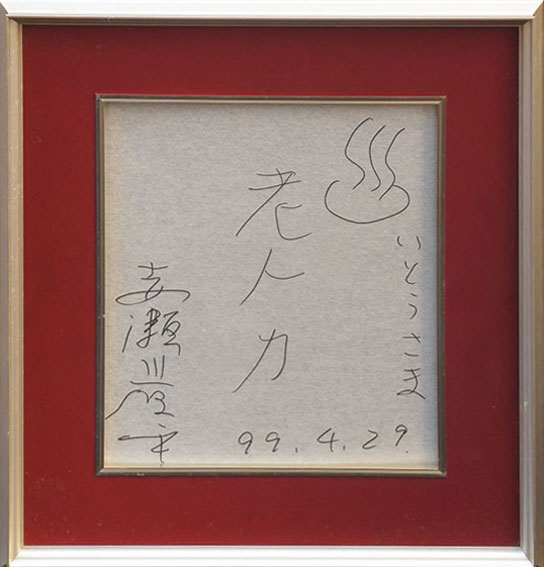 ♨ いとうさま
老人力
赤瀬川原平
99.4.29.